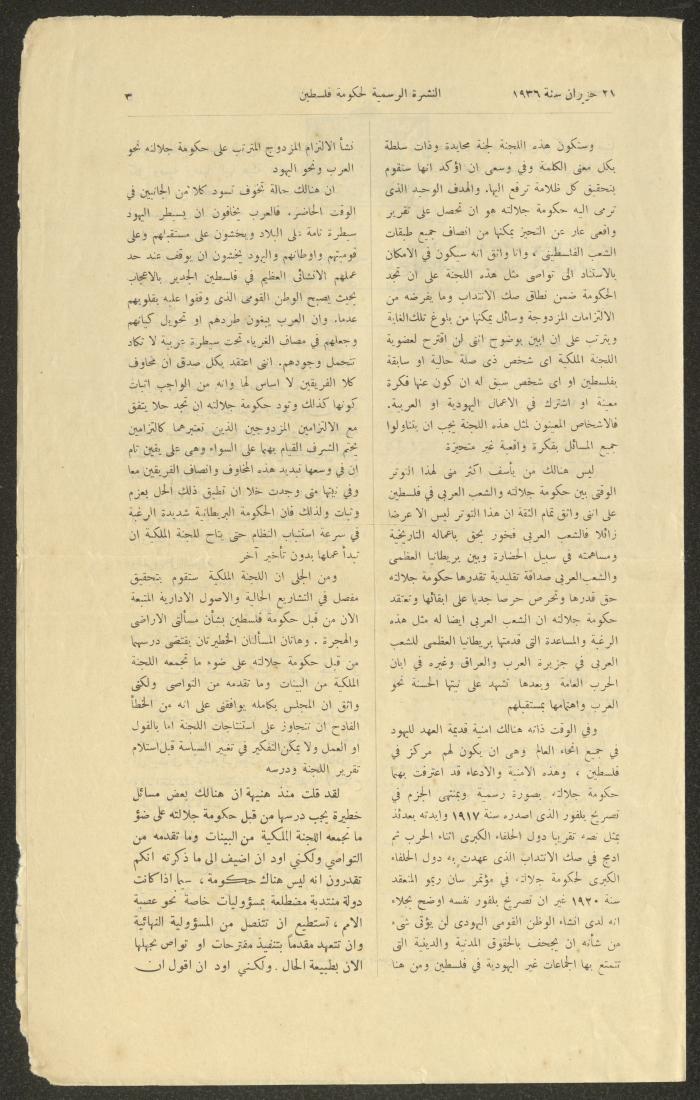 ٢١ حزيران سنة ١٩٣٦
النشرة الرسمية لحكومة فلسطين
٣
وستكون هذه اللجنة لجنة محايدة وذات سلطة
بكل معنى الكلمة وفي وسعى ان اؤكد انها ستقوم
بتحقيق كل ظلامة ترفع اليها. والهدف الوحيد الذى
ترمى اليه حكومة جلالته هو ان تحصل على تقرير
واقعى عار عن التحيز يمكنها من انصاف جميع طبقات
الشعب الفلسطينى ، وانا واثق انه سيكون في الامكان
بالاستناد الى تواصى مثل هذه اللجنة على ان تجد
الحكومة ضمن نطاق صك الانتداب وما يفرضه من
الالتزامات المزدوجة وسائل يمكنها من بلوغ تلك الغاية
ويترتب على ان ابين بوضوح اننى لن اقترح لعضوية
اللجنة الملكية اى شخص ذى صلة حالية او سابقة
بفلسطين او اى شخص سبق له ان كون عنها فكرة
معينة او اشترك في الاعمال اليهودية او العربية.
فالاشخاص المعينون لمثل هذه اللجنة يجب ان يتناولوا
جميع المسائل بفكرة واقعية غير متحيزة
ليس هنالك من يأسف اكثر منى لهذا التوتر
الوقتى بين حكومة جلالته والشعب العربى في فلسطين
على اننى واثق تمام الثقة ان هذا التوتر ليس الا عرضا
زائلا فالشعب العربى فخور بحق باعماله التاريخية
ومساهمته في سبيل الحضارة وبين بريطانيا العظمى
والشعب العربى صداقة تقليدية تقدرها حكومة جلالته
حق قدرها وتحرص حرصا جديا على ابقائها وتعتقد
حكومة جلالته ان الشعب العربى ايضا له مثل هذه
الرغبة والمساعدة التى قدمتها بريطانيا العظمى للشعب
العربى في جزيرة العرب والعراق وغيره في ابان
الحرب العامة وبعدها تشهد على نيتها الحسنة نحو
العرب واهتمامها بمستقبلهم
وفي الوقت ذاته هنالك امنية قديمة العهد لليهود
في جميع انحاء العالم وهى ان يكون لهم مركز في
فلسطين ، وهذه الامنية والادعاء قد اعترفت بهما
حكومة جلالته بصورة رسمية وبمنتهى الجزم في
تصريح بلفور الذى اصدره سنة ١٩١٧ وايدته بعدئذ
بمثل نصه تقريبا دول الحلفاء الكبرى اثناء الحرب ثم
ادمج في صك الانتداب الذى عهدت به دول الحلفاء
الكبرى لحكومة جلالته في مؤتمر سان ريمو المنعقد
سنة ١٩٢٠ غير ان تصريح بلفور نفسه اوضح بجلاء
انه لدى انشاء الوطن القومى اليهودى لن يؤتى شىء
من شأنه ان يجحف بالحقوق المدنية والدينية التى
تتمتع بها الجماعات غير اليهودية في فلسطين ومن هنا
نشأ الالتزام المزدوج المترتب على حكومة جلالته نحو
العرب ونحو اليهود
ان هنالك حالة تخوف تسود كلا من الجانبين في
الوقت الحاضر. فالعرب يخافون ان يسيطر اليهود
سيطرة تامة على البلاد ويخشون على مستقبلهم وعلى
قوميتهم واوطانهم واليهود يخشون ان يوقف عند حد
عملهم الانشائى العظيم في فلسطين الجدير بالاعجاب
بحيث يصبح الوطن القومى الذى وقفوا عليه بقلوبهم
عدما. وان العرب يبغون طردهم او تحويل كيانهم
وجعلهم في مصاف الغرباء تحت سيطرة عربية لا تكاد
تتحمل وجودهم. اننى اعتقد بكل صدق ان مخاوف
كلا الفريقين لا اساس لها وانه من الواجب اثبات
كونها كذلك وتود حكومة جلالته ان تجد حلا يتفق
مع الالتزامين المزدوجين الذين تعتبرهما كالتزامين
يحتم الشرف القيام بهما على السواء وهى على يقين تام
ان في وسعها تبديد هذه المخاوف وانصاف الفريقين معا
وفي نيتها متى وجدت حلا ان تطبق ذلك الحل بعزم
وثبات ولذلك فان الحكومة البريطانية شديدة الرغبة
في سرعة استتباب النظام حتى يتاح للجنة الملكية ان
تبدأ عملها بدون تأخير آخر
ومن الجلى ان اللجنة الملكية ستقوم بتحقيق
مفصل في التشاريع الحالية والاصول الادارية المتبعة
الآن من قبل حكومة فلسطين بشأن مسألتى الاراضى
والهجرة . وهاتان المسألتان الخطيرتان يقتضى درسهما
من قبل حكومة جلالته على ضوء ما تجمعه اللجنة
الملكية من البينات وما تقدمه من التواصى ولكنى
واثق ان المجلس بكامله يوافقنى على انه من الخطأ
الفادح ان تتجاوز على استنتاجات اللجنة اما بالقول
او العمل ولا يمكن التفكير في تغيير السياسة قبل استلام
تقرير اللجنة ودرسه
لقد قلت منذ هنيهة ان هنالك بعض مسائل
خطيرة يجب درسها من قبل حكومة جلالته على ضؤ
ما تجمعه اللجنة الملكية من البينات وما تقدمه من
التواصي ولكني اود ان اضيف الى ما ذكرته انكم
تقدرون انه ليس هناك حكومة ، سيما اذا كانت
دولة منتدبة مضطلعة بمسؤوليات خاصة نحو عصبة
الامم ، تستطيع ان تتنصل من المسؤولية النهائية
وان تتعهد مقدماً بتنفيذ مقترحات او تواص نجهلها
الآن بطبيعة الحال . ولكني اود ان اقول ان